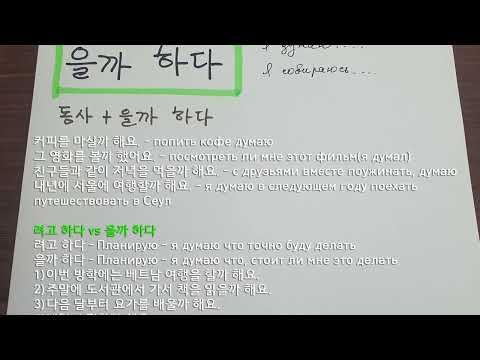 을까 하다
я думаю....
я собираюсь....
동사 + 을까 하다
커피를 마실까 해요. - попить кофе думаю
그 영화를 볼까 했어요 - посмотреть ли мне этот фильм(я думал)
친구들과 같이 저녁을 먹을까 해요. - с друзьями вместе поужинать, думаю
내년에 서울에 여행할까 해요. - я думаю в следующем году поехать
путешествовать в Сеул
려고 하다 vs 을까 하다
려고 하다 - Планирую - я думаю что точно буду делать
을까 하다 - Планирую - я думаю что, стоит ли мне это делать
1)이번 방학에는 베트남 여행을 할까 해요.
2)주말에 도서관에서 가서 책을 읽을까 해요.
3)다음 달부터 요가를 배울까 해요.